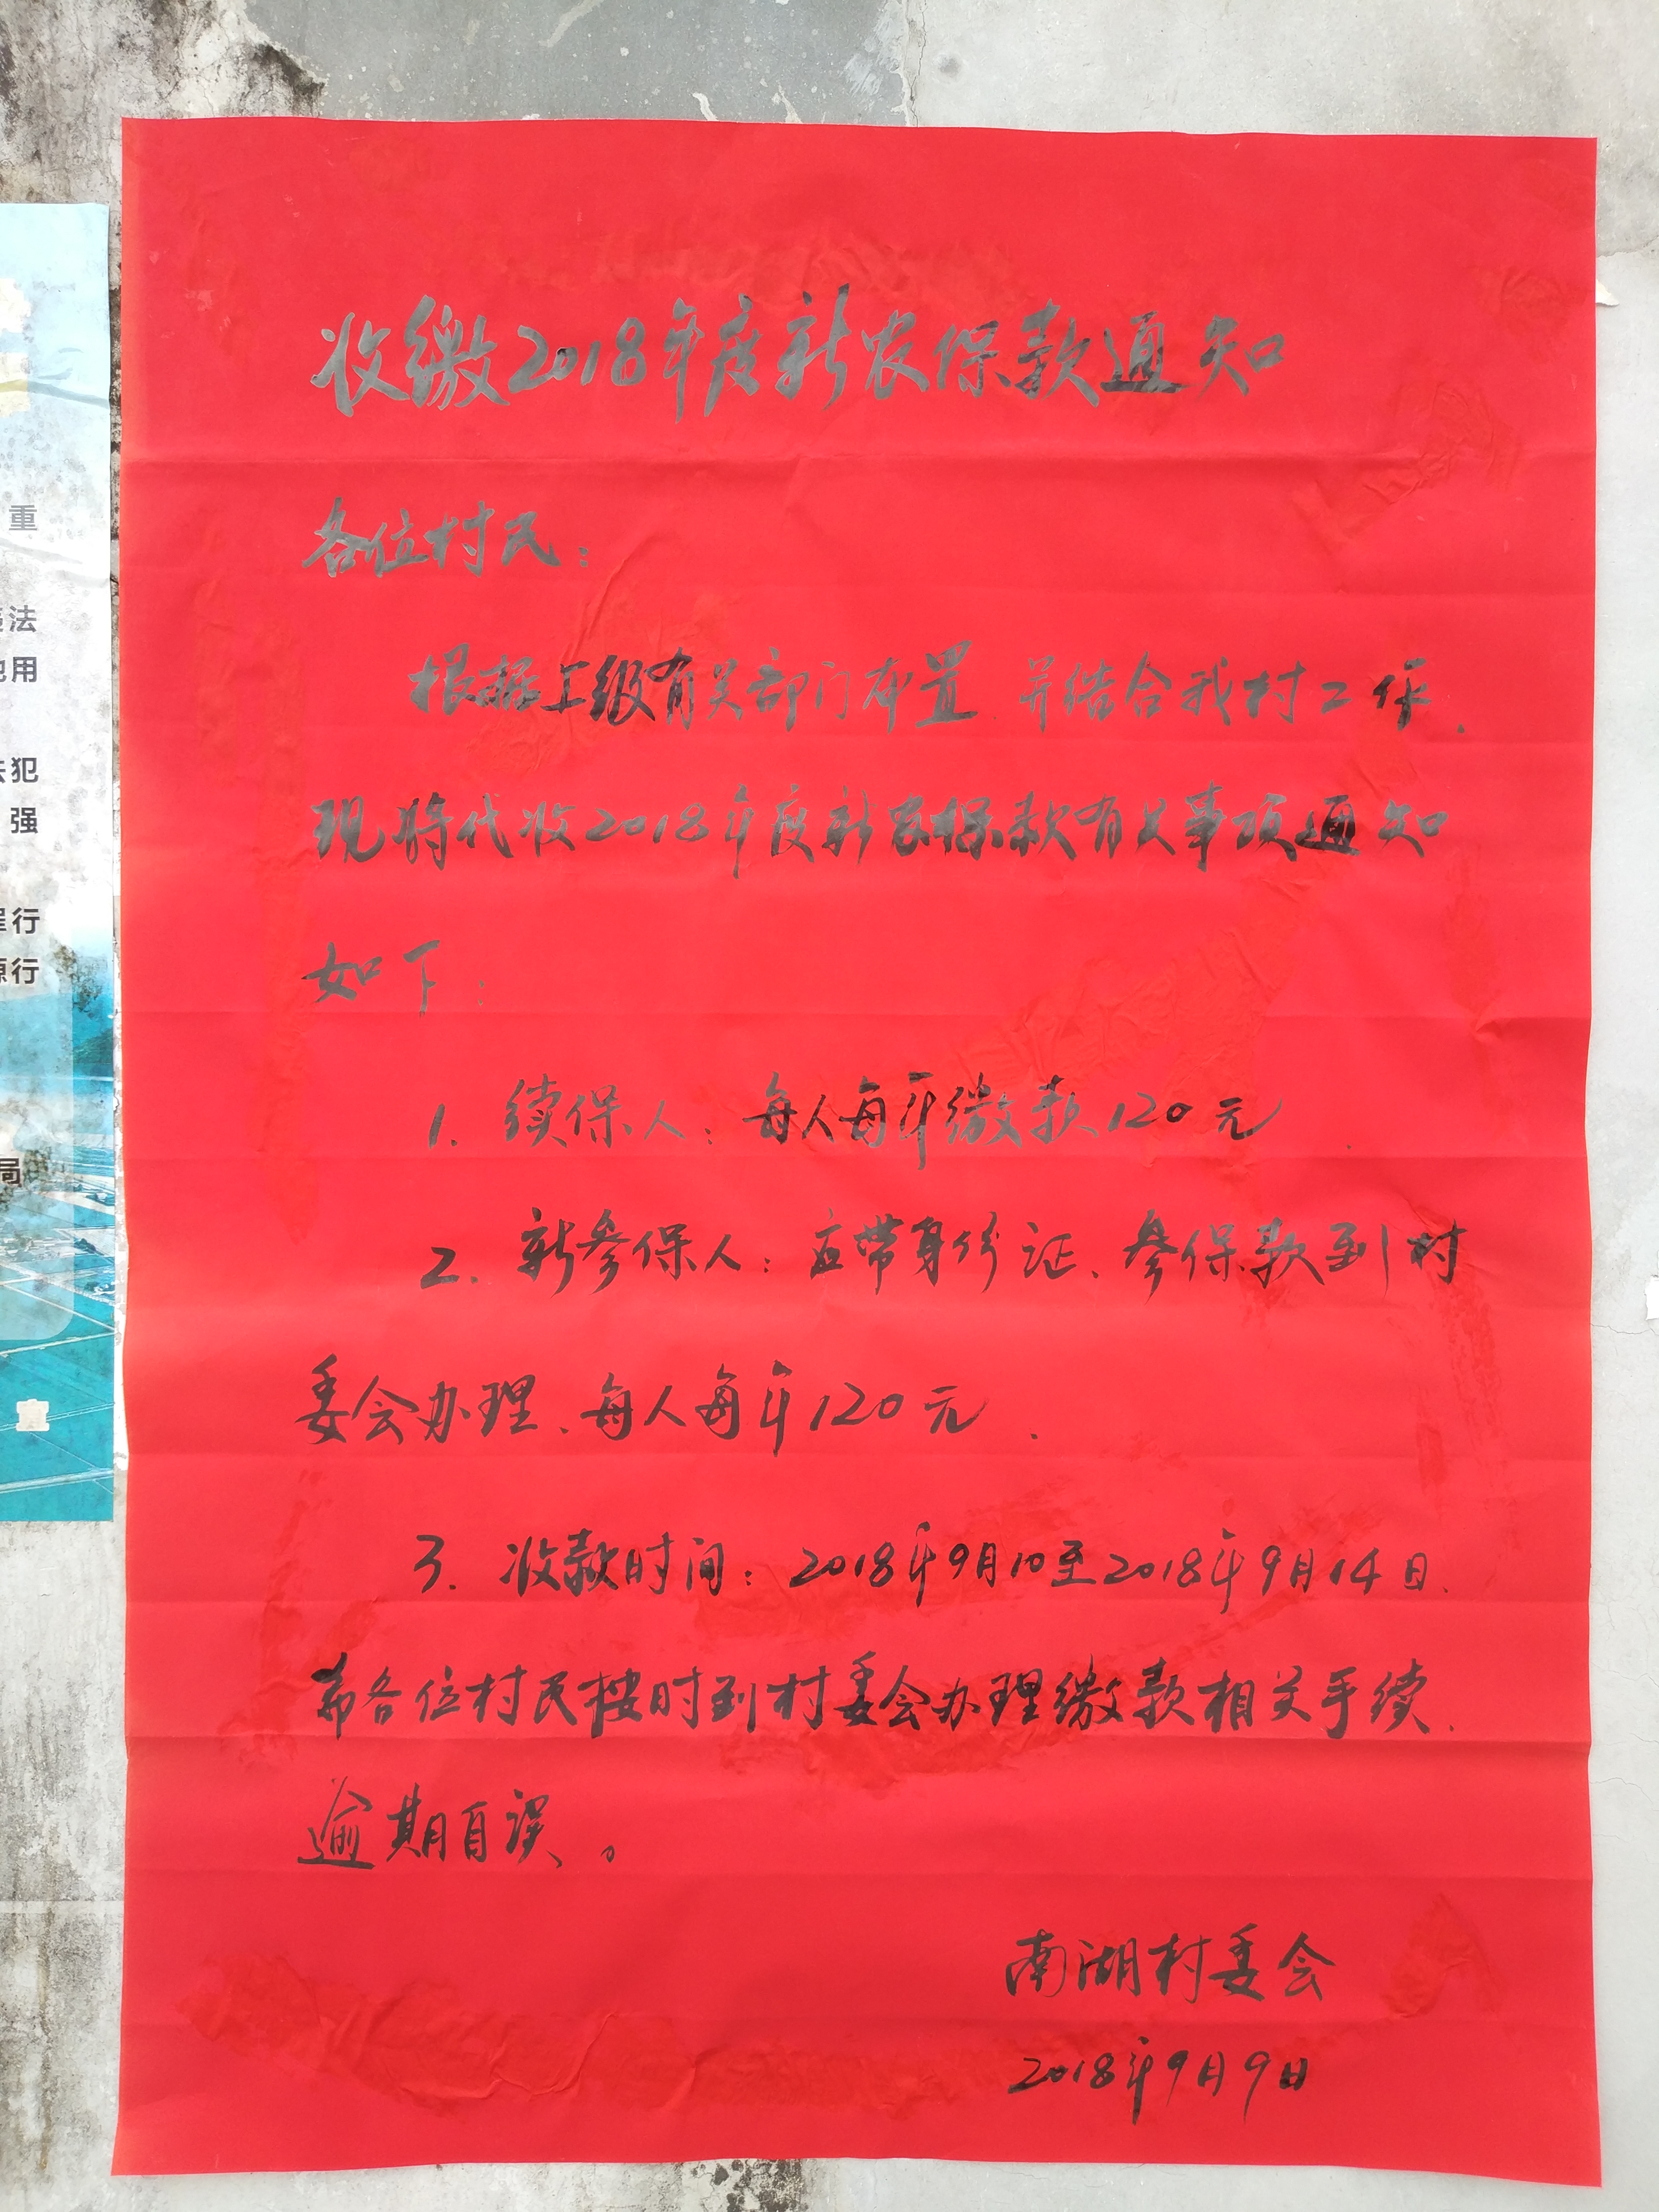 收缴2018年度新农保款通知
各位村民:
根据上级有关部门布置.并结合我村工作.
现将代收2018年度新农保款有关事项通知
如下:
1. 续保人:每人每年缴款120元.
2. 新参保人:应带身份证、参保款到村
委会办理、每人每年120元.
3. 收款时间:2018年9月10至2018年9月14日.
希各位村民按时到村委会办理缴款相关手续.
逾期自误。
南湖村委会
2018年9月9日
重
法
用
犯
强
行
行
局
宣